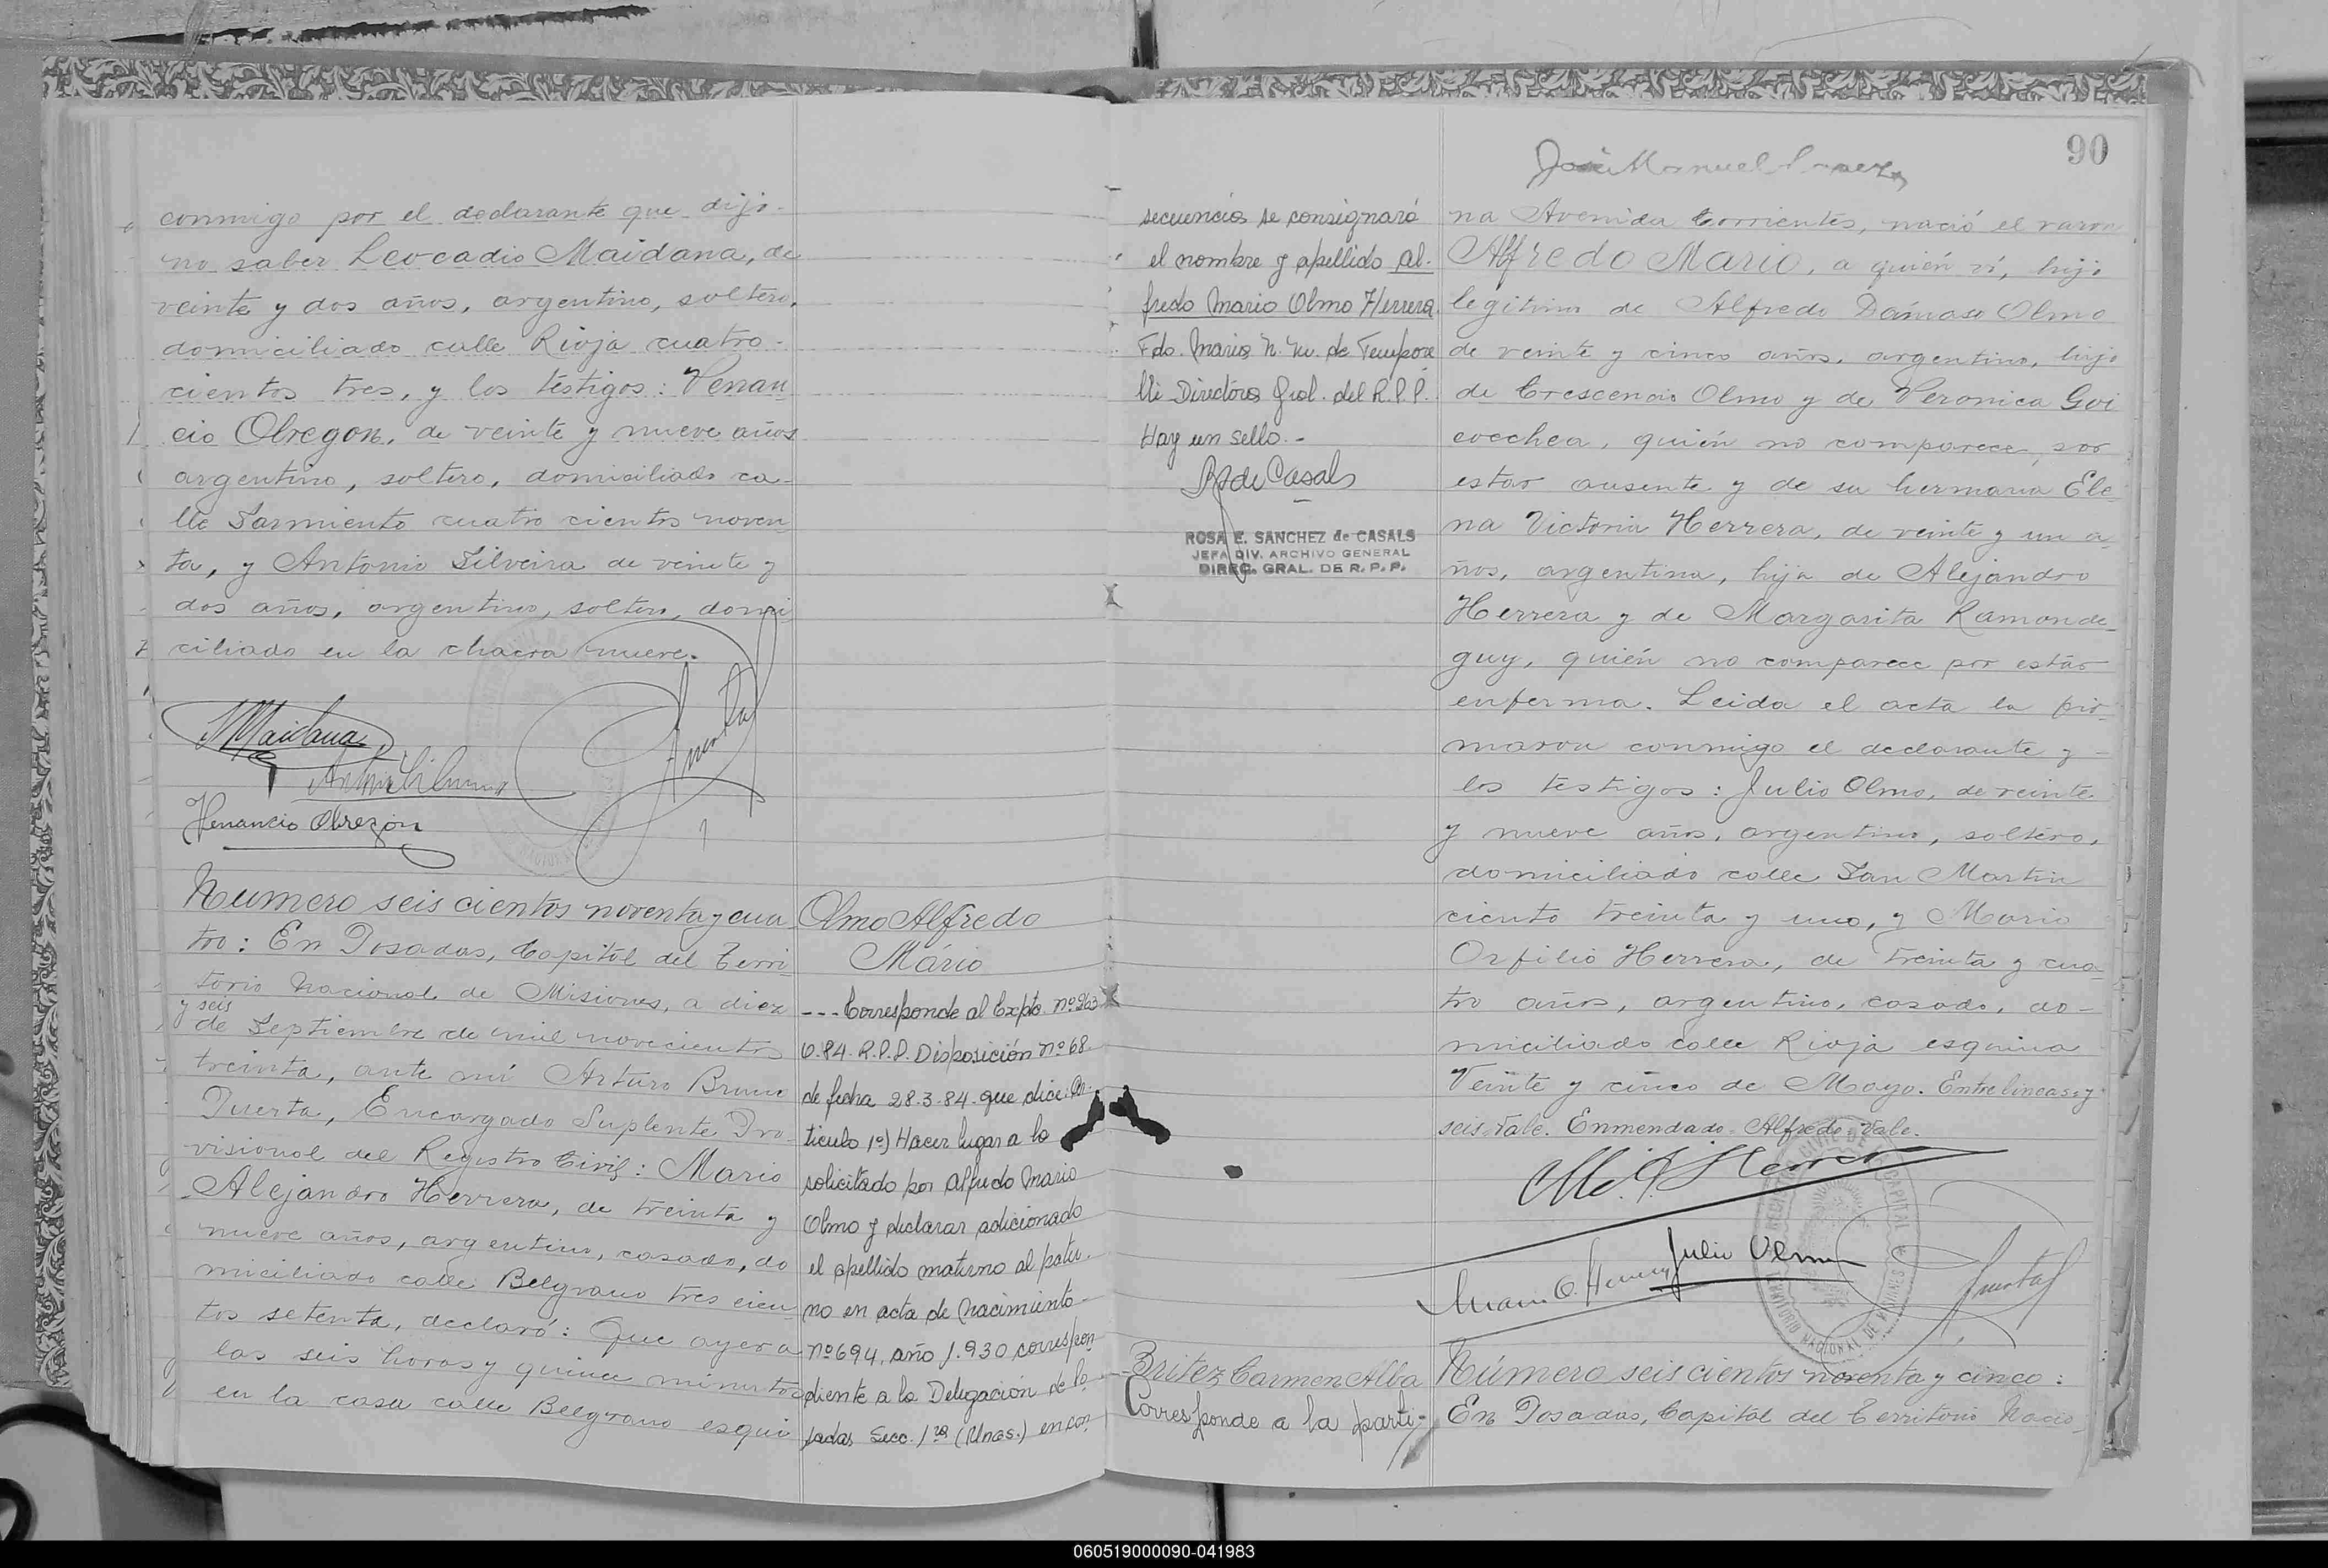 conmigo por el declarante que dijo
no saber Leocadio Maidana, de
veinte y dos años, argentino, soltero,
domiciliado calle Rioja cuatro-
cientos tres, y los téstigos: Venan
cio Obregon, de veinte y nueve años
argentino, soltero, domiciliado ca-
lle Sarmiento cuatro cientos noven
ta, y Antonio Silveira de veinte y
dos años, argentino, soltero, domi
ciliado en la chacra nueve.
Maidana
Venancio Obregón
Número seis cientos noventa y cua
tro: En Posadas, Capital del Terri
torio Nacional de Misiones, a diez
y seis
de Septiembre de mil novecientos
treinta, ante mí Arturo Bruno
Puerta, Encargado Suplente Pro
visional del Registro Civil: Mario
Alejandro Herrera, de treinta y
nueve años, argentino, casado, do
miciliado calle Belgrano tres cien
tos setenta, declaró: Que ayer a
las seis horas y quince minutos
en la casa calle Belgrano esqui
Olmo Alfredo
Mário
--- Corresponde al Expte. nº 263
0.84. R.P.P. Disposición nº 68
de fecha 28.3.84. que dice: Ar-
ticulo 1º) Hacer lugar a lo
solicitado por Alfredo Mario
Olmo y declarar adicionado
el apellido materno al pater-
no en acta de nacimiento
nº 694, año 1.930 correspon
diente a la Delegación de Po-
sadas Secc. 1ra (Mnes.) en con
secuencia se consignará
el nombre y apellido Al-
fredo Mario Olmo Herrera.
Fdo. Maria N. de Tempore
lli Directora Gral. del R.P.P.
Hay un sello.-
R S de Casals
ROSA E. SANCHEZ de CASALS
JEFA DIV. ARCHIVO GENERAL
DIREC. GRAL. DE R. P. P.
Britez Carmen Alba
Corresponde a la parti-
90
José Manuel
na Avenida Corrientes, nació el varon
Alfredo Mario, a quién ví, hijo
legítimo de Alfredo Dámaso Olmo
de veinte y cinco años, argentino, hijo
de Crescencio Olmo y de Veronica Goi
cochea, quién no comparece por
estar ausente y de su hermana Ele
na Victoria Herrera, de veinte y un a-
ños, argentina, hija de Alejandro
Herrera y de Margarita Ramonde-
guy, quién no comparece por estar
enferma. Leida el acta la fir-
maron conmigo el declarante y
los testigos: Julio Olmo, de veinte
y nueve años, argentino, soltero,
domiciliado calle San Martin
ciento treinta y uno, y Mario
Orfilio Herrera, de treinta y cua-
tro años, argentino, casado, do-
miciliado calle Rioja esquina
Veinte y cinco de Mayo. Entrelineas: y
seis. Vale. Enmendado. Alfredo. Vale.
M. A. Herrera
Julio Olmo
Mario O. Herrera
Número seis cientos noventa y cinco:
En Posadas, Capital del Territorio Nacio
060519000090-041983